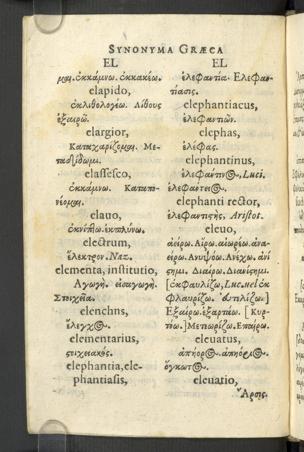 SYNONYMA GRÆCA
EL
μαι. ἐκκάμνω. ἐκκακέω.
elapido,
ἐκλιθολογέω. Λίθους
ἐξαιρῶ.
elargior,
Καταχαρίζομαι. Με-
ταδίδωμι.
elassesco,
ἐκκάμνω. Καταπο-
νέομαι.
elauo,
ἐκνίπτω. ἐκπλύνω.
electrum,
ἤλεκτρον. Naz.
elementa, institutio,
Ἀγωγή. εἰσαγωγή.
Στοιχεῖα.
elenchus,
ἔλεγχος.
elementarius,
στιχειακός.
elephantia, ele-
phantiasis,
EL
ἐλεφαντία. Ἐλεφαν-
τίασις.
elephantiacus,
ἐλεφαντιῶν.
elephas,
ἐλέφας.
elephantinus,
ἐλεφάντινος, Luci.
ἐλεφάντειος.
elephanti rector,
ἐλεφαντιστὴς, Aristot.
eleuo,
ἀείρω. Αἴρω. αἰωρέω. ἀνα-
είρω. Ανυψόω. Ανέχω. ἀνί
σημι. Διαίρω. Διανίσημι.
[ἐκφαυλίζω, Luc. vel ἐκ
φλαυρίζω. εὐτελίζω.]
Ἐξαίρω. ἐξαρτάω. [Κυρ-
τόω.] Μετεωρίζω. Επαίρω.
eleuatus,
ἀπήορος. ἀπήορος.
ὀγκωτός.
eleuatio,
Ἄρσις.